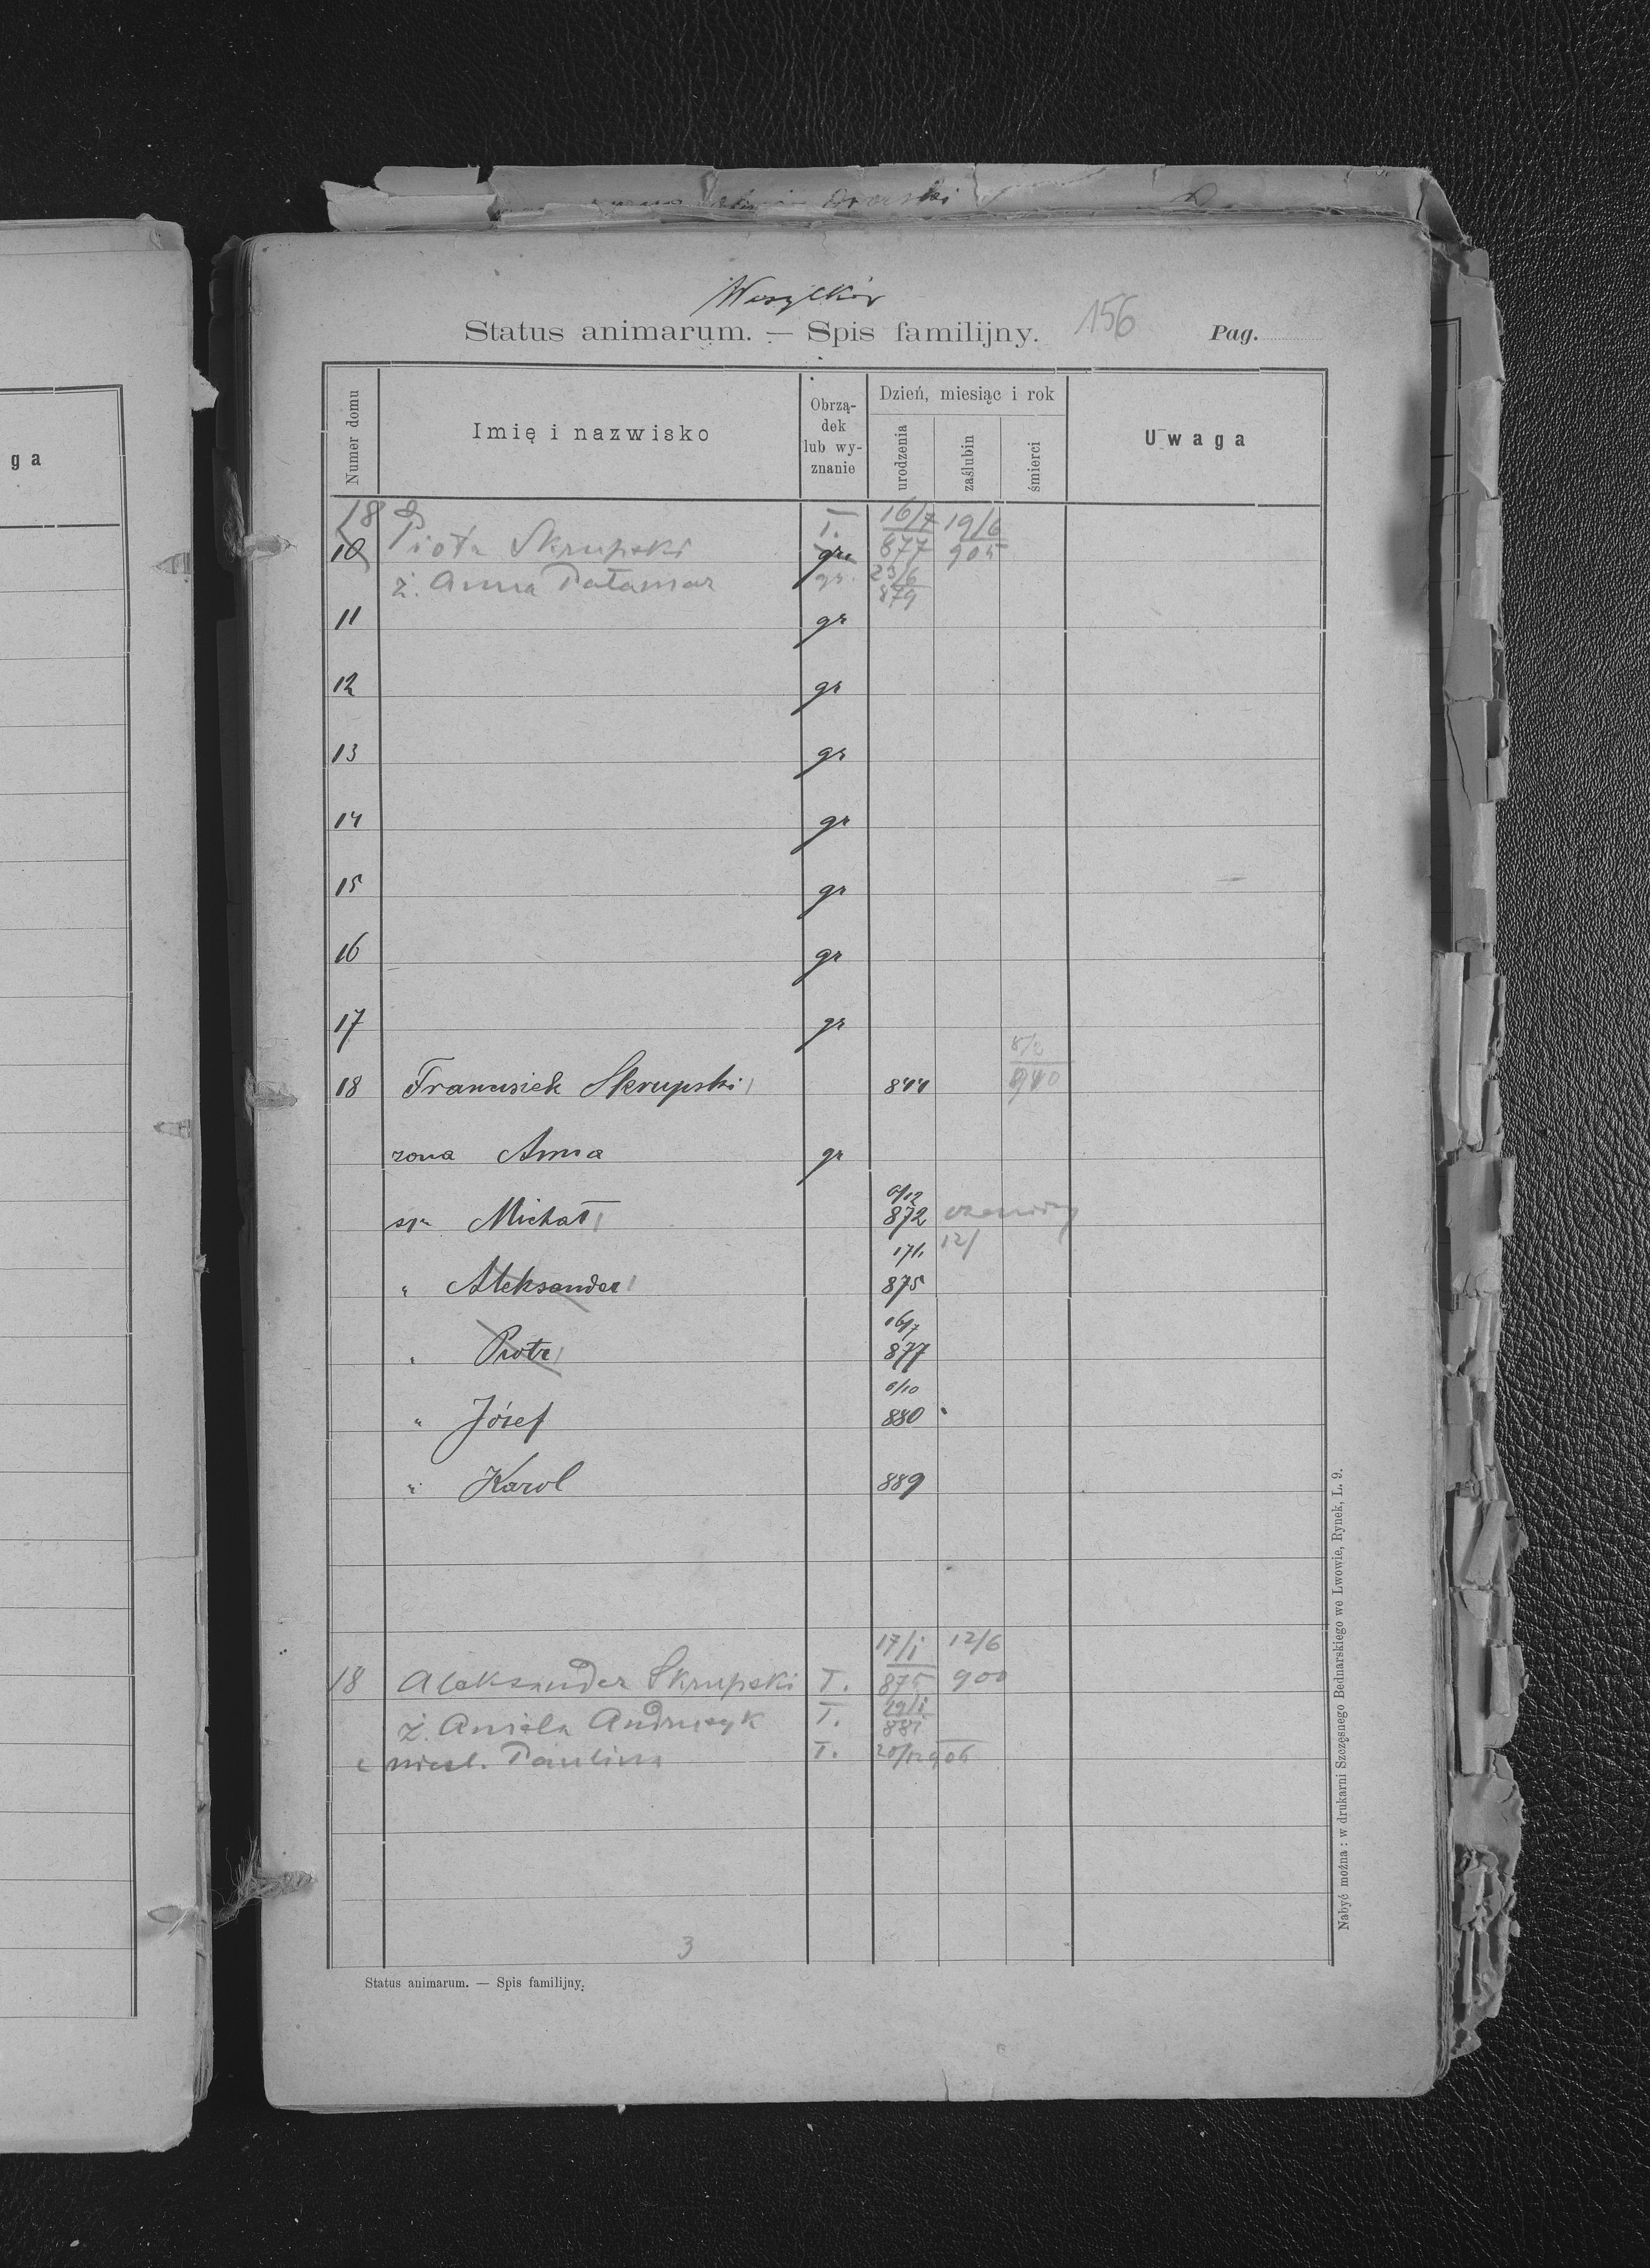 Status animarum. — Spis familijny. 156 Pag.
ga
Numer domu
Imię i nazwisko
Obrzą-
dek
lub wy-
znanie
Dzień, miesiąc i rok
urodzenia
zaślubin
śmierci
Uwaga
18 Piotr Skrupski Ł. 16/7 877 19/6 905
10 gr.
ż. Anna gr. 23/6 879
11 gr
12 gr
13 gr
14 gr
15 gr
16 gr
17 gr
18 Franciszek Skrupski 844
żona Anna gr
syn Michał 872
" Aleksander 17/1 875
" Piotr 16/7 877
" Józef 6/10 880
" Karol 889
18 Aleksander Skrupski Ł. 17/i 875 12/6 900
ż. Aniela Ł.
Paulina Ł.
3
Status animarum. — Spis familijny.
Nabyć można: w drukarni Szczęsnego Bednarskiego we Lwowie, Rynek, L. 9.